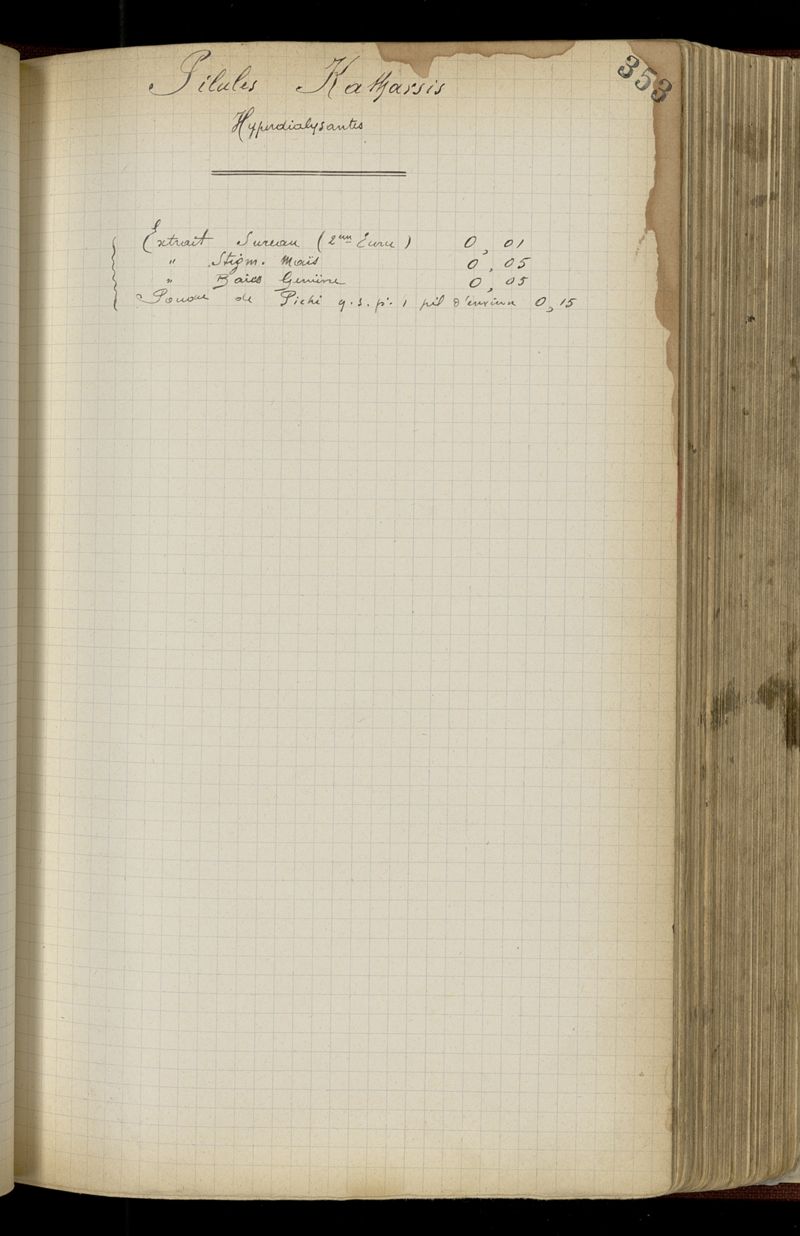 353
Pilules Katharsis
Hyperdialysantes
Extrait Sureau (2me Ecorce) 0,01
" Stigm. Maïs 0,05
" Baies Genièvre 0,05
Poudre de Pichi q.s.p. 1 pil d'environ 0,15